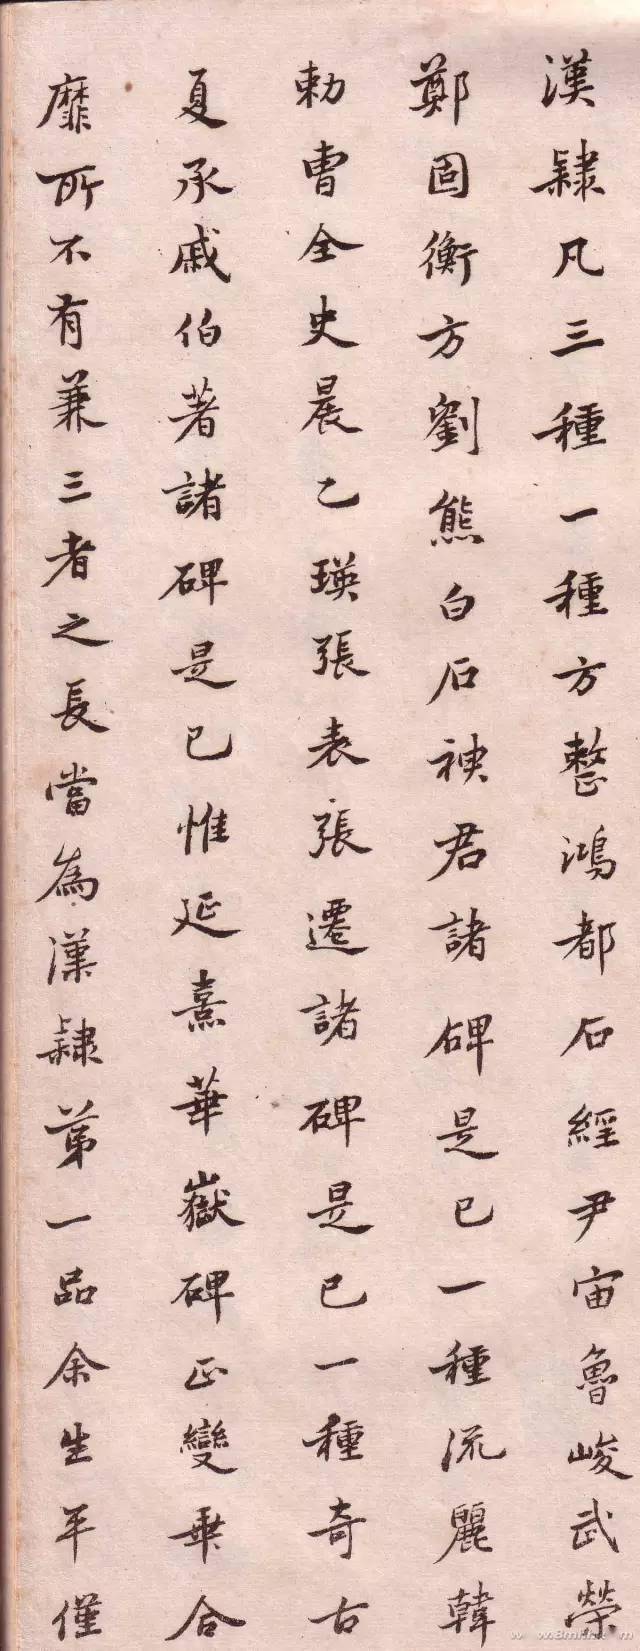 漢隸凡三種一種方整鴻都石經尹宙魯峻武榮
鄭固衡方劉熊白石神君諸碑是已一種流麗韓
勅曹全史晨乙瑛張表張遷諸碑是已一種奇古
夏承戚伯著諸碑是已惟延熹華嶽碑正變乖合
靡所不有兼三者之長當為漢隸第一品余生平僅